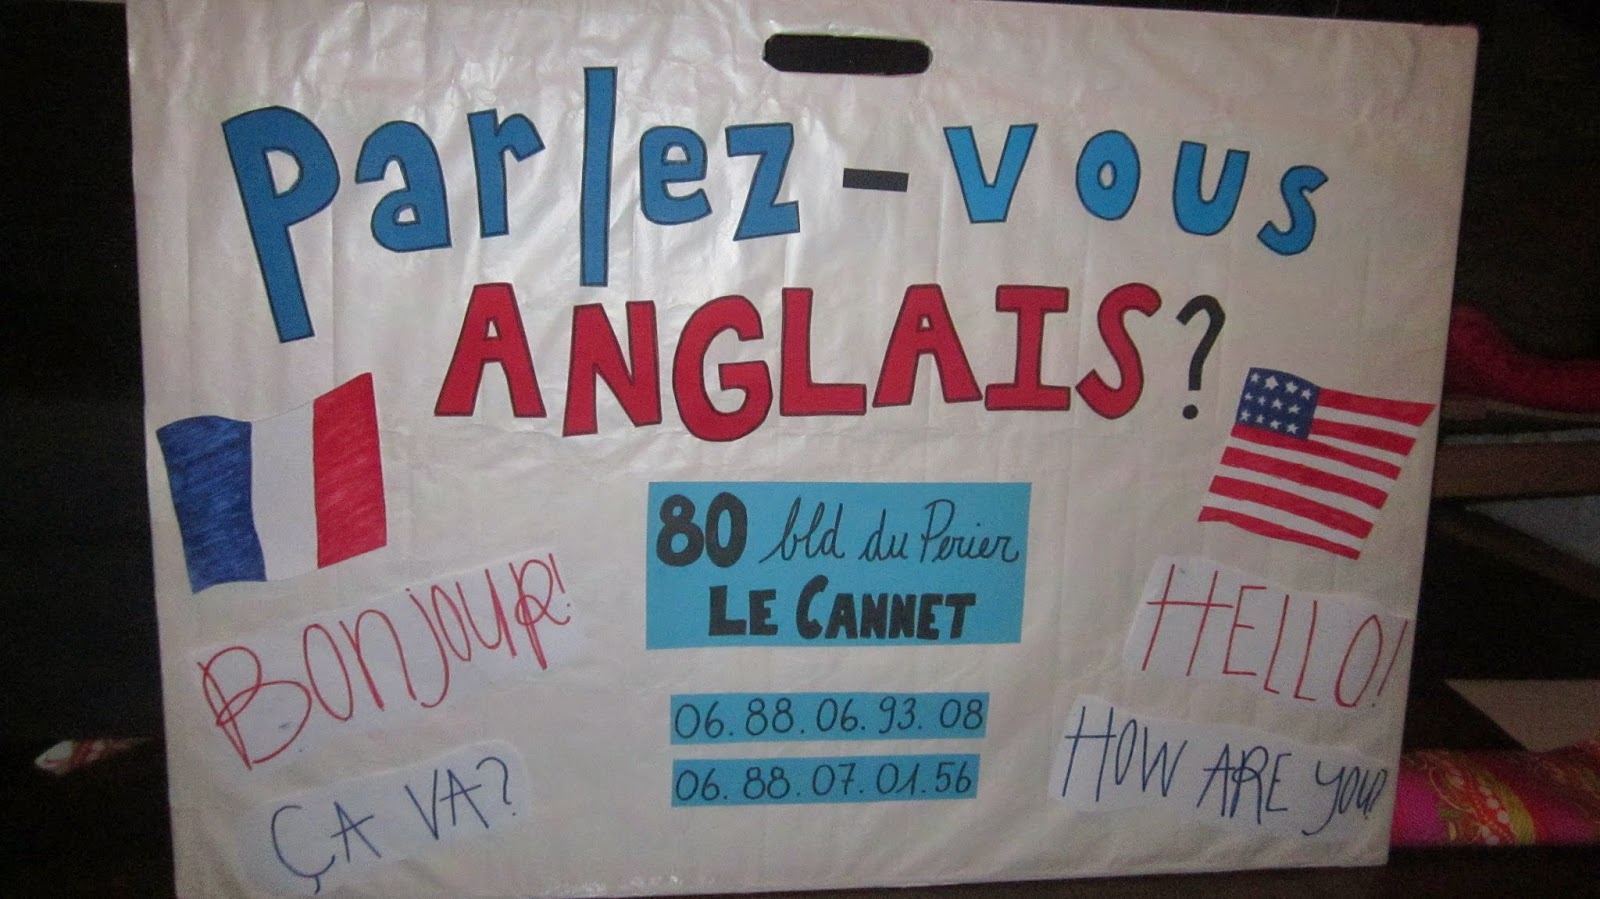 Parlez-vous
ANGLAIS?
80 bld du Perier
LE CANNET
06.88.06.93.08
06.88.07.01.56
BONJOUR!
ÇA VA?
HELLO!
HOW ARE YOU?